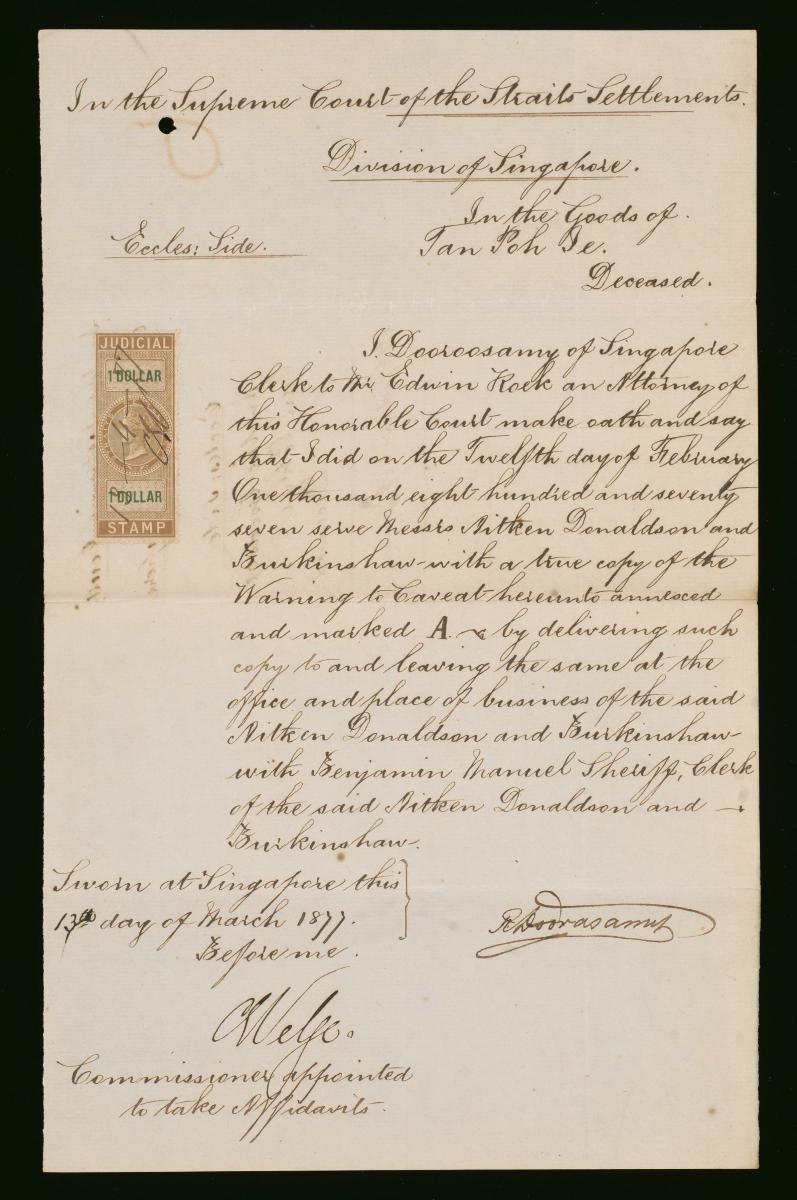 In the Supreme Court of the Straits Settlements.
Division of Singapore.
In the Goods of.
Eccles: Side.
Tan Poh Ie.
Deceased.
JUDICIAL
1 DOLLAR
1 DOLLAR
STAMP
I. Dooroosamy of Singapore
Clerk to Mr. Edwin Koek an Attorney of
this Honorable Court make oath and say
that I did on the Twelfth day of February
One thousand eight hundred and seventy
seven serve Messrs Aitken Donaldson and
Burkinshaw with a true copy of the
Warning to Caveat hereunto annexed
and marked A. by delivering such
copy to and leaving the same at the
office and place of business of the said
Aitken Donaldson and Burkinshaw
with Benjamin Manuel Sheriff, Clerk
of the said Aitken Donaldson and —.
Burkinshaw.
Sworn at Singapore this
13th day of March 1877.
R Doorasamy
Before me.
Commissioner appointed
to take Affidavits.